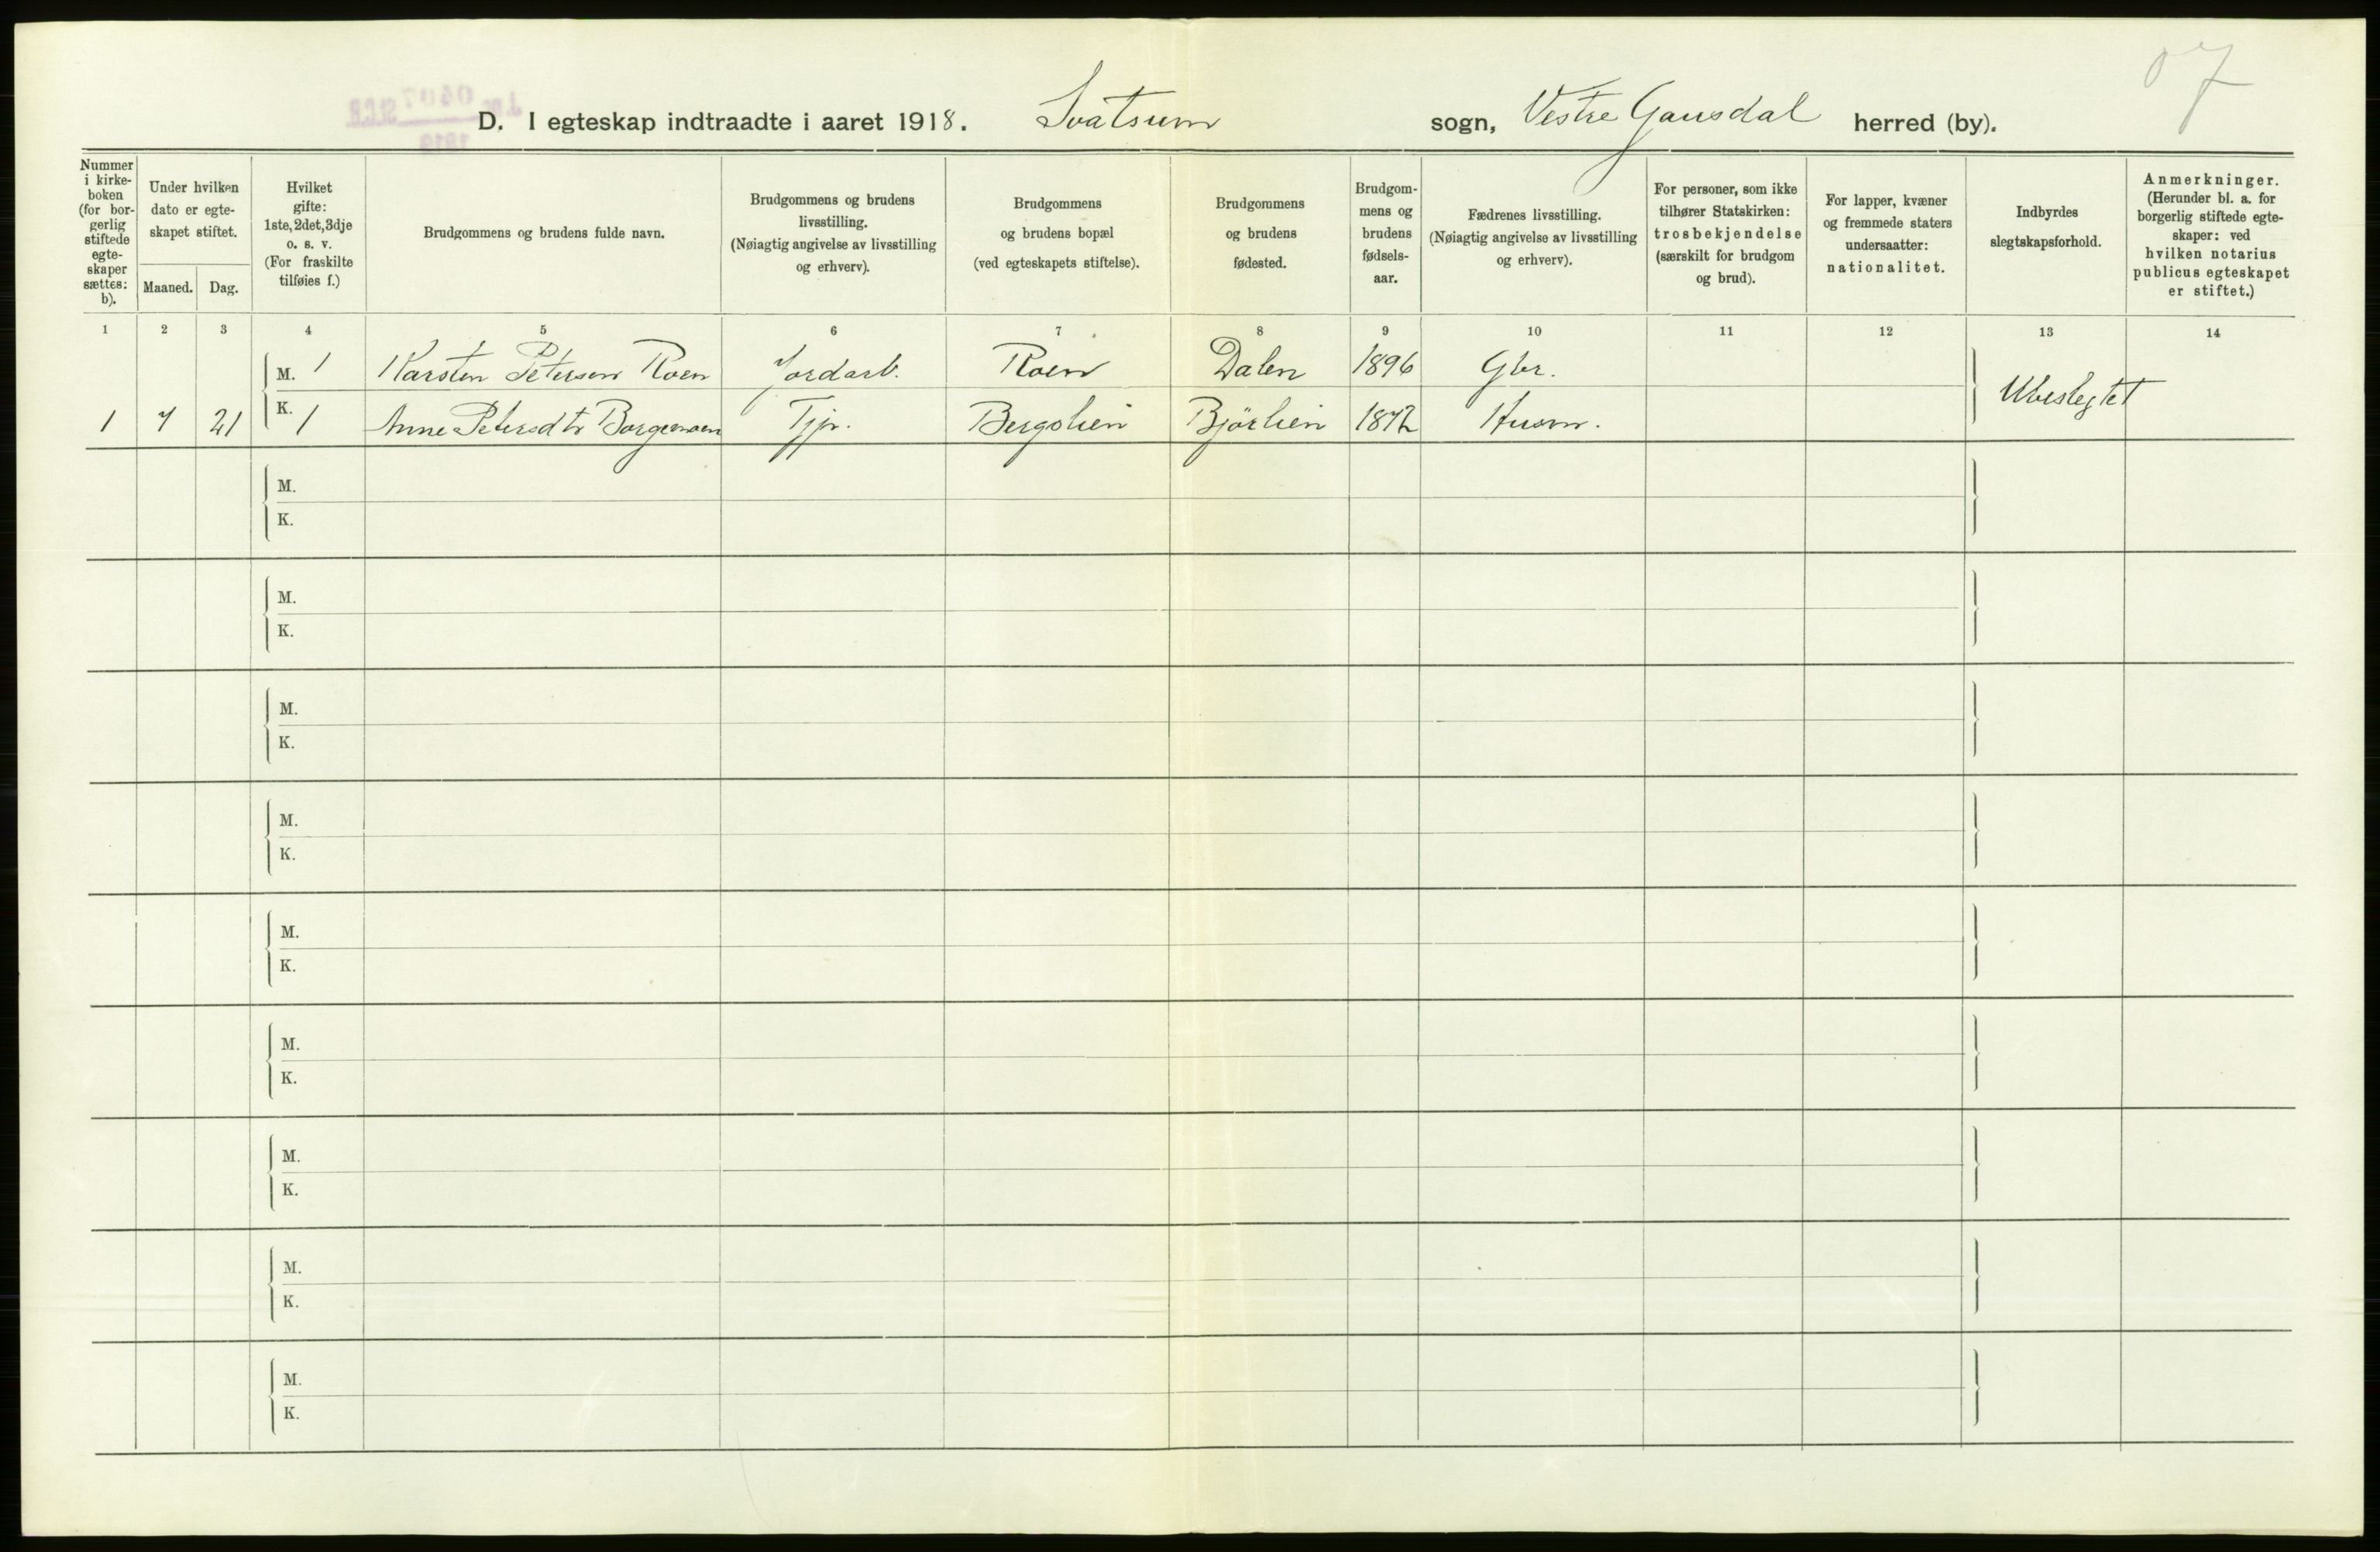 07
D. I egteskap indtraadte i aaret 1918. Svatsum sogn, Vestre Gausdal herred (by).
Nummer i kirkeboken (for borgerlig stiftede egteskaper sættes: b).
Under hvilken dato er egteskapet stiftet.
Maaned. Dag.
Hvilket gifte: 1ste, 2det, 3dje o. s. v. (For fraskilte tilføies f.)
Brudgommens og brudens fulde navn.
Brudgommens og brudens livsstilling. (Nøiagtig angivelse av livsstilling og erhverv).
Brudgommens og brudens bopæl (ved egteskapets stiftelse).
Brudgommens og brudens fødested.
Brudgommens og brudens fødselsaar.
Fædrenes livsstilling. (Nøiagtig angivelse av livsstilling og erhverv).
For personer, som ikke tilhører Statskirken: trosbekjendelse (særskilt for brudgom og brud).
For lapper, kvæner og fremmede staters undersaatter: nationalitet.
Indbyrdes slegtskapsforhold.
Anmerkninger. (Herunder bl. a. for borgerlig stiftede egteskaper: ved hvilken notarius publicus egteskapet er stiftet.)
1 2 3 4 5 6 7 8 9 10 11 12 13 14
M. 1 Karsten Petersen Roen Jordarb. Roen Dalen 1896 Gbr.
Ubeslegtet
1 7 21 K. 1 Anne Petersdtr Borgemoen Tjp. Bergslien Bjørlien 1872 Husm.
M.
K.
M.
K.
M.
K.
M.
K.
M.
K.
M.
K.
M.
K.
M.
K.
M.
K.